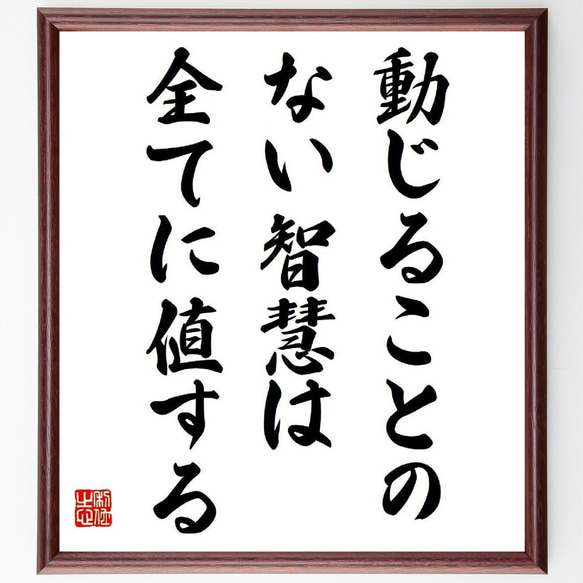 動じることの
ない智慧は
全てに値する